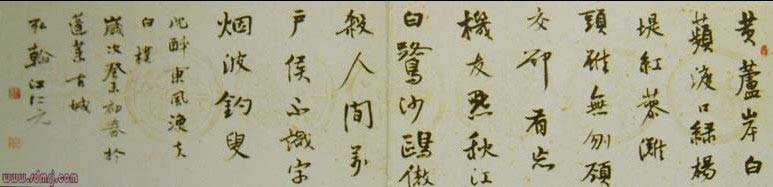 黄蘆岸白
蘋渡口緑楊
堤紅蓼灘
頭雖無刎頸
交卻有忘
機友點秋江
白鷺沙鷗傲
殺人間萬
戶侯不識字
烟波釣叟
沉醉東風漁夫
白樸
歲次癸未初春於
蓬萊古城
翰江仁元
www.sdmj.com